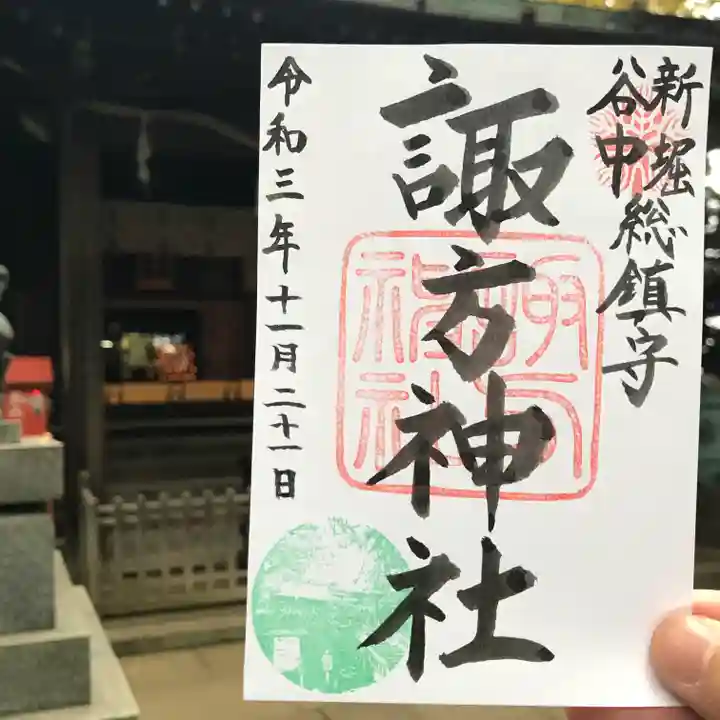 新堀
谷中
総鎮守
諏方神社
諏方
神社
令和三年十一月二十一日